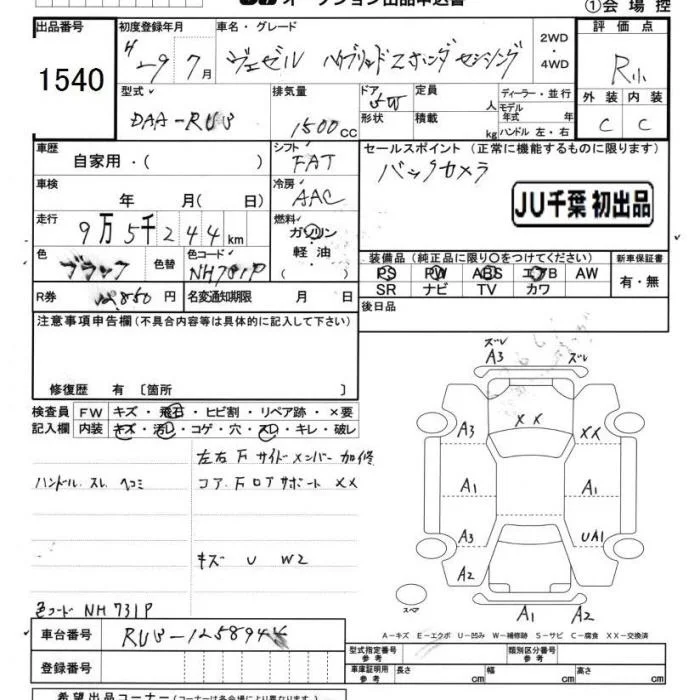 オークション出品申込書
①会場控
出品番号 初度登録年月 車名・グレード 2WD・4WD 評価点
1540 H-29 7月 ヴェゼル ハイブリッドZ ホンダセンシング R小
型式 排気量 ドア 5W 定員 人 ディーラー・並行 外装 内装
DAA-RU3 1500cc 形状 積載 kg モデル年式 年 ハンドル 左・右 C C
車歴 自家用・( ) シフト FAT セールスポイント(正常に機能するものに限ります)
車検 年 月( 日) 冷房 AAC バックカメラ
JU千葉 初出品
走行 9万5千244km 燃料 ガソリン・軽油・( )
色 ブラック 色替 色コード NH731P 装備品(純正品に限り○をつけてください) 新車保証書
PS PW ABS エアB AW 有・無
R券 円 名変通知期限 月 日 SR ナビ TV カワ
注意事項申告欄(不具合内容等は具体的に記入して下さい) 後日品
修復歴 有 〔箇所 〕
ズレ
A3 ズレ
検査員 FW キズ・飛石・ヒビ割・リペア跡・×要
記入欄 内装 キズ・汚レ・コゲ・穴・スレ・キレ・破レ
××
A3 ××
左右Fサイドメンバー加修
ハンドル.スレ ヘコミ コア.Fロアサポート ××
A1 A1
A3 UA1
キズ U W2
A2
スペア
A1 A2
色コード NH731P
A-キズ E-エクボ U-凹み W-補修跡 S-サビ C-腐食 XX-交換済
車台番号 RU3-125894
型式指定番号 参考 類別区分番号 参考
登録番号 車庫証明用 参考 長さ cm 幅 cm 高さ cm
希望出品コーナー(コーナーは各会場により異なります)